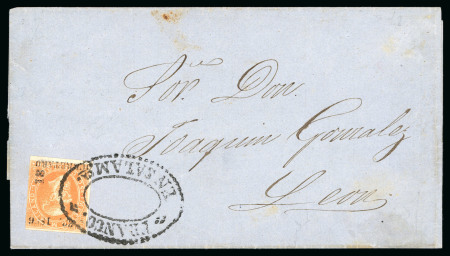 Sor. Don
Joaquin Gonzalez
Leon
FRANCO
EN SALAMCA